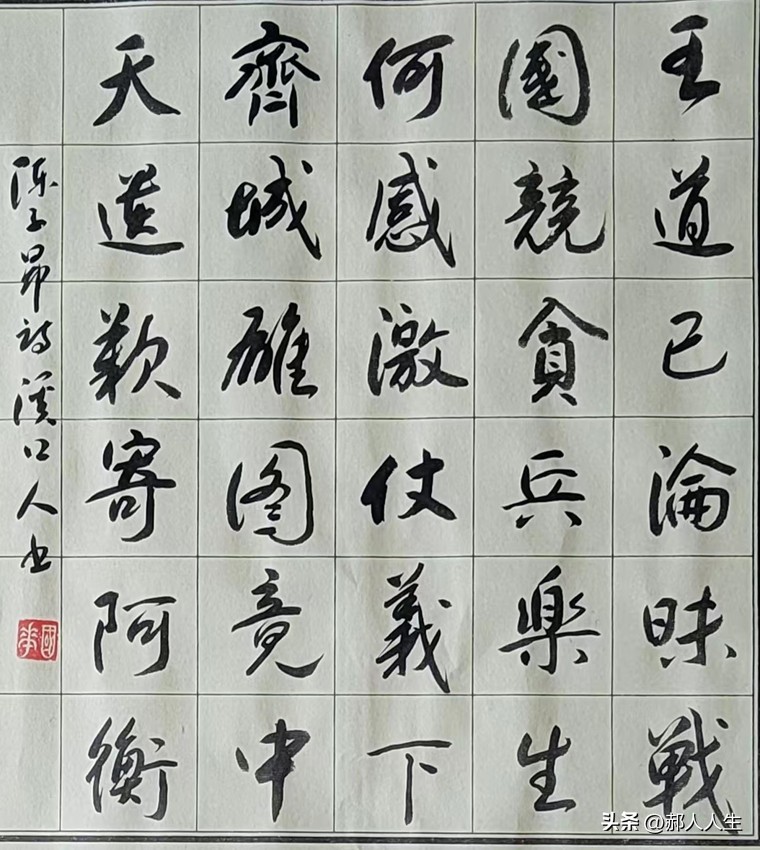 王道已淪昧戰
國競貪兵樂生
何感激仗義下
齊城雄图竟中
夭遺歎寄阿衡
陈子昂诗溪口人书
國华
头条 @郝人人生